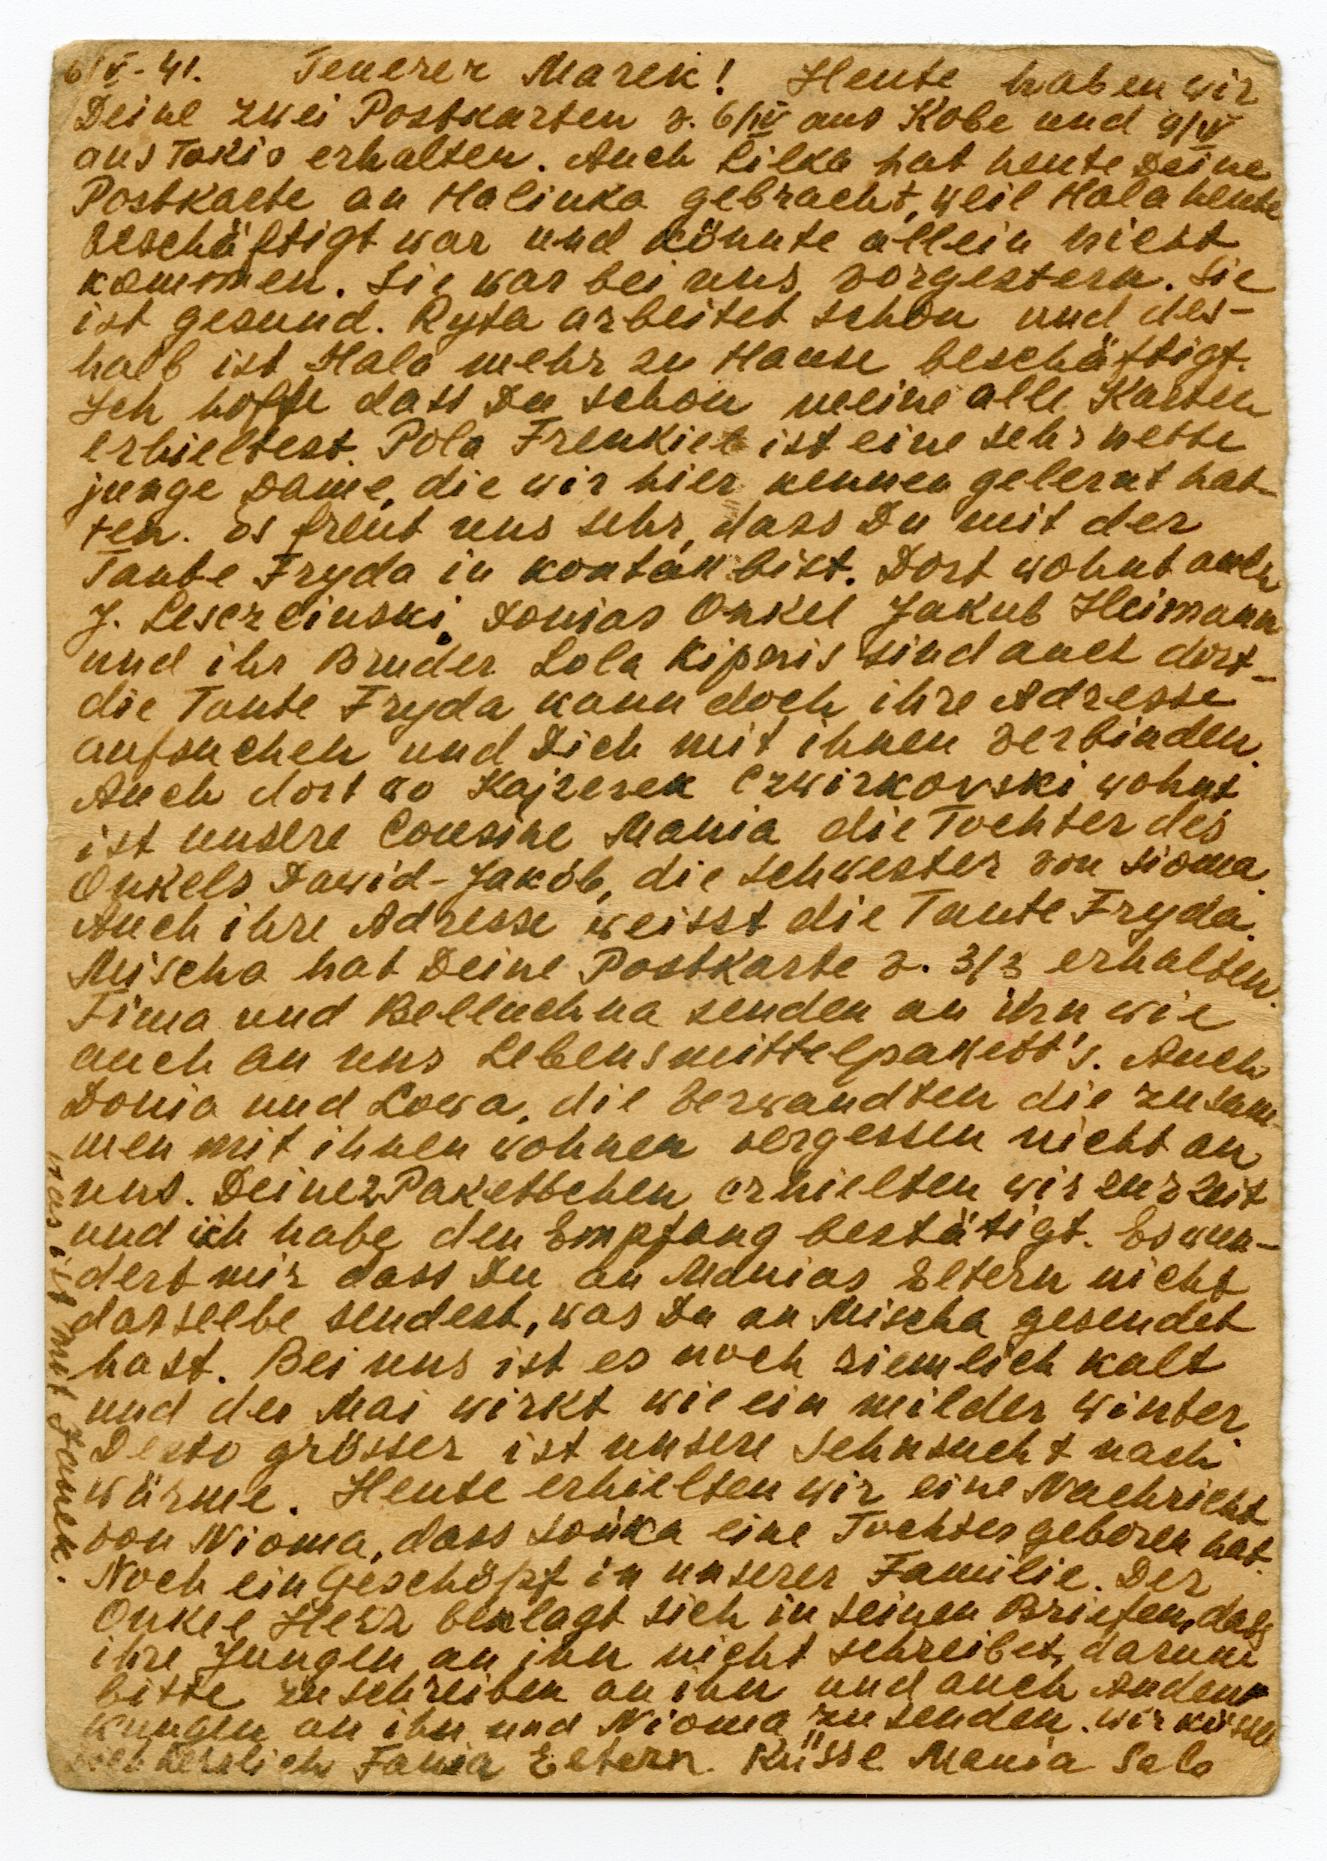 6/V-41. Teuerer Marek! Heute haben wir
Deine zwei Postkarten v. 6/IV aus Kobe und 9/IV
aus Tokio erhalten. Auch Lilka hat heute Deine
Postkarte an Halinka gebracht, weil Hala heute
beschäftigt war und könnte allein nicht
kommen. Sie war bei uns vorgestern. Sie
ist gesund. Ryta arbeitet schon und des-
halb ist Hala mehr zu Hause beschäftigt.
Ich hoffe dass Du schon meine alle Karten
erhieltest. Pola Frenkiel ist eine sehr nette
junge Dame, die wir hier kennen gelernt hat-
ten. Es freut uns sehr, dass Du mit der
Tante Fryda in kontakt bist. Dort wohnt auch
J. Lesczcinski, Donias Onkel Jakub Heimann
und ihr Bruder Lola Kipnis sind auch dort-
die Tante Fryda kann doch ihre Adresse
aufsuchen und Dich mit ihnen verbinden.
Auch dort wo Kajzerek Czwirkovski wohnt
ist unsere Cousine Mania die Tochter des
Onkels Dawid-Jakób, die schwester von Sioma.
Auch ihre Adresse weisst die Tante Fryda.
Mischa hat Deine Postkarte v. 3/3 erhalten.
Fima und Belluchna senden an ihn wie
auch an uns Lebensmittelpakett's. Auch
Donia und Lowa, die Verwandten die zusam-
men mit ihnen wohnen vergessen nicht an
uns. Deine 2 Pakettchen erhielten wir zur Zeit
und ich habe den Empfang bestätigt. Es wun-
dert mir dass Du an Manias Eltern nicht
dasselbe sendest, was Du an Mischa gesendet
hast. Bei uns ist es noch ziemlich kalt
und der Mai wirkt wie ein milder Winter
Desto grösser ist unsere Sehnsucht nach
wärme. Heute erhielten wir eine Nachricht
von Nioma, dass Sonka eine Tochter geboren hat.
Noch ein Geschöpf in unserer Familie. Der
Onkel Herz beklagt sich in seinen Briefen, dass
ihre Jungen an ihn nicht schreibet, darum
bitte zu schreiben an ihn und auch Anden-
kungen an ihn und Nioma zu senden. Wir küssen
herzlich Fania Eltern. Küsse Mania Sala
was ist mit Janek.